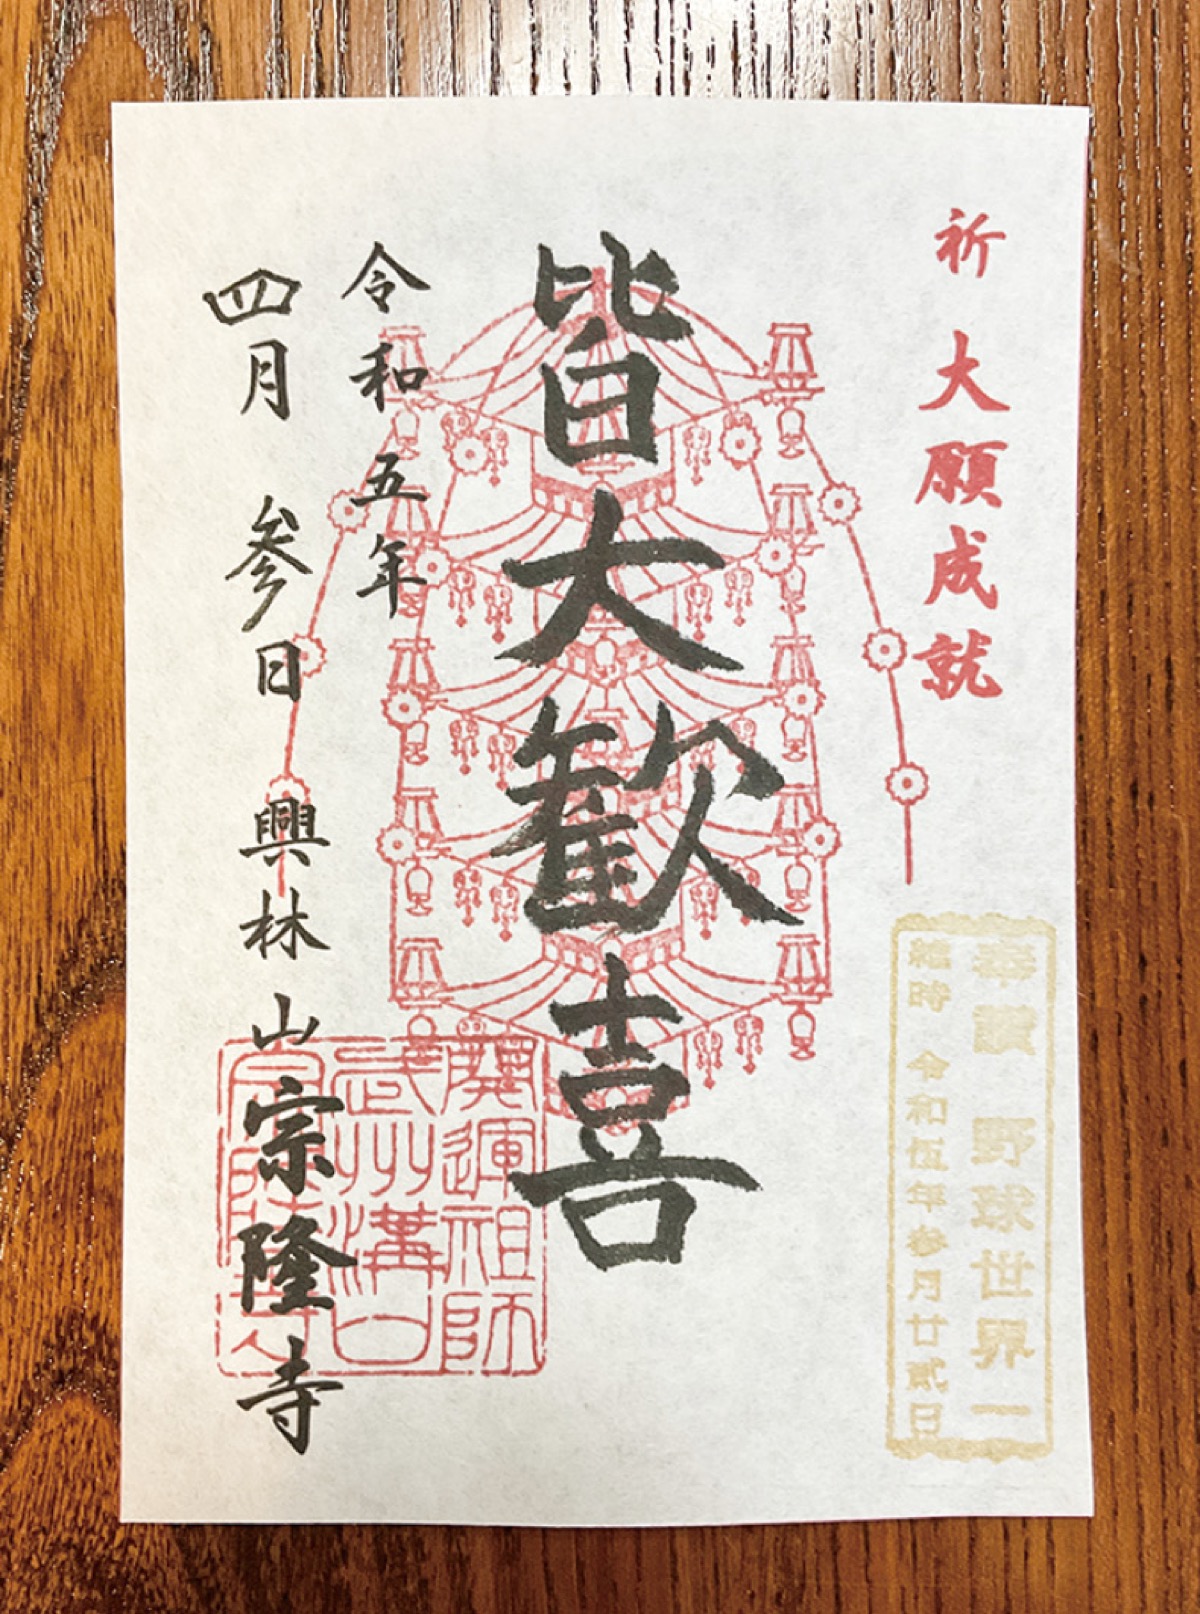 祈 大願成就
奉讃 野球世界一
維時 令和伍年参月廿貳日
皆大歓喜
令和五年
四月参日 興林山宗隆寺
開運祖師
武州溝口